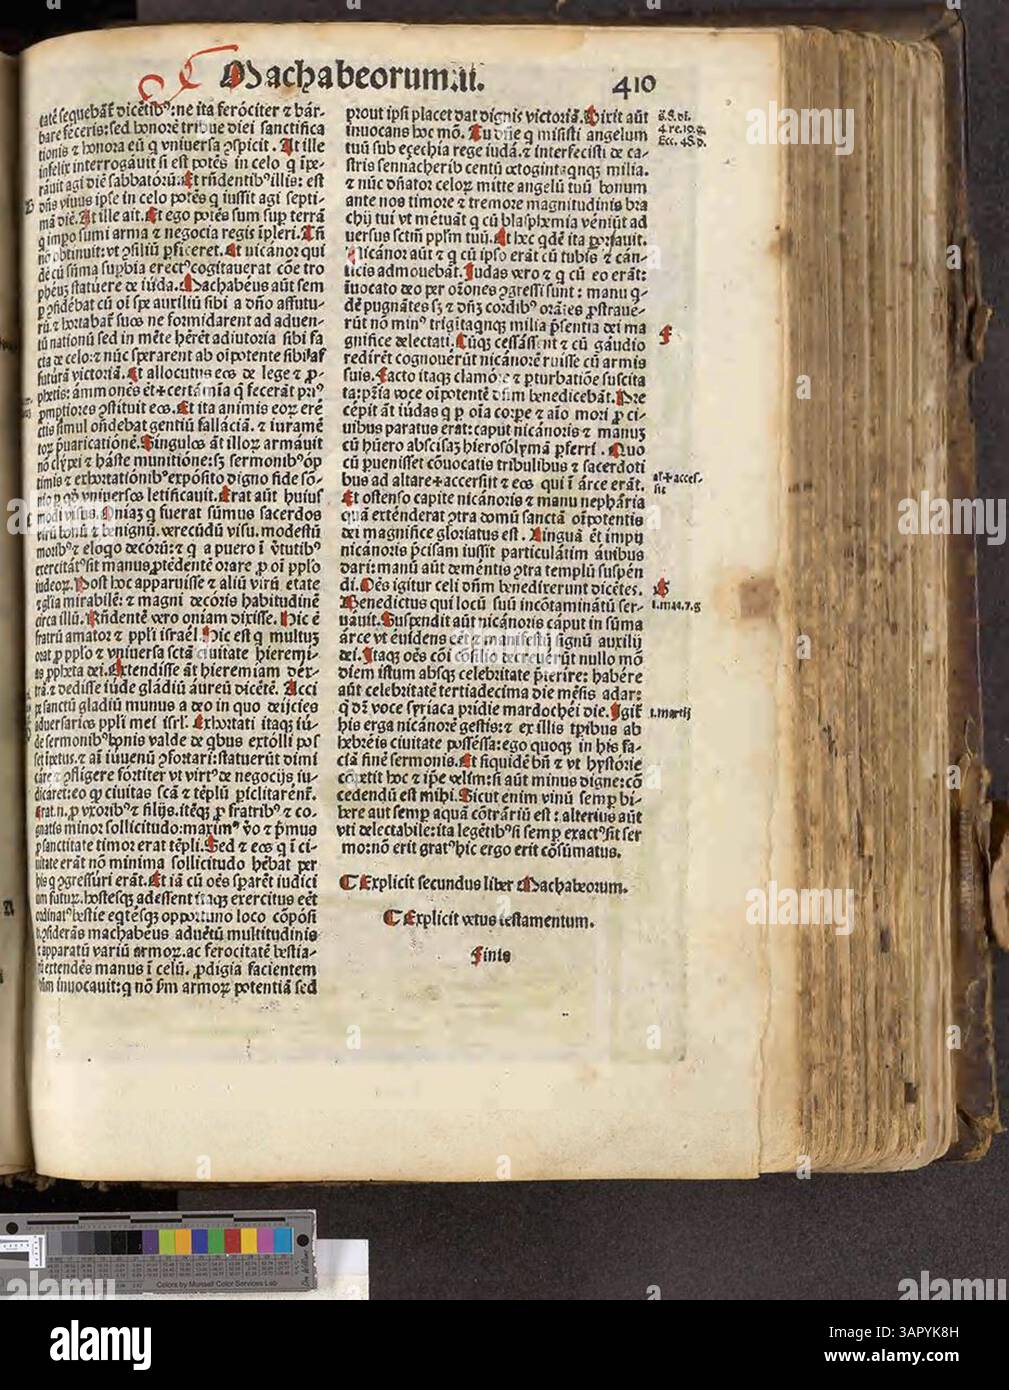 Machabeorum.ii.
410
tatē sequebāt̄ dicētibꝰ: ne ita ferociter ⁊ bár-
bare feceris: sed honorē tribue diei sanctifica
tionis ⁊ honora eū q̄ vniversa ꝯspicit. At ille
infelix interrogauit si est potēs in celo q̄ īpe-
rāuit agi diē sabbatōrū. Et rñdentibꝰ illis: est
dñs viuus ipse in celo potēs q̄ iussit agi septi-
mā diē. At ille ait. Et ego potēs sum sup terrā
q̄ impo sumi arma ⁊ negocia regis īpleri. Tñ
nō obtinuit: vt ꝯsiliū ꝑficeret. Et nicanor qui
dē cū sūma supbia erectꝰ cogitauerat cōe tro
pheuȝ statuere de iúda. Machabéus aūt sem
p ꝯfidébat cū oī spe auxiliū sibi a dño affutu-
rū. ⁊ hortabat̄ suos ne formidarent ad aduen-
tū nationū sed in mēte hērēt adiutoria sibi fa
cta de celo: ⁊ nūc sperarent ab oīpotente sibi
futurā victoriā. Et allocutus eos de lege ⁊ ꝓ-
phetis: ámmonēs ēt + certámīa q̄ fecerāt priꝰ
ꝓmptiores ꝯstituit eos. Et ita animis eoꝝ erē
ctis simul oñdebat gentiū fallaciā. ⁊ iuramē
toꝝ p̄uaricationē. Singulos āt illoꝝ armáuit
nō clýpei ⁊ háste munitióne: sȝ sermonibꝰ óp
timis ⁊ exhortationibꝰ expósito digno fide sō-
nio ꝑ qḋ vniuersos letificauit. Erat aūt huiusͦ
modi visus. Oniaȝ q̄ fuerat súmus sacerdos
virū bonū ⁊ benignū. verecūdū visu. modestū
moribꝰ ⁊ eloqo decórū: ⁊ q̄ a puero ī v̄tutibꝰ
exercitátꝰ sit manus ꝓtēdentē orare ꝓ oī pplo
iudeoꝝ. Post hoc apparuisse ⁊ aliū virū etate
⁊ glīa mirabilē: ⁊ magni decóris habitudinē
circa illū. Rñdentē vero oniam dixisse. Hic ē
fratrū amator ⁊ ppli israēl. Hic est q̄ multuȝ
orat ꝓ pplo ⁊ vniuersa sctā ciuitate hieremi-
as ꝓpheta dei. Extendisse āt hieremiam déx-
trā. ⁊ dedisse iúde gládiū áureū dicētē. Acci
pe sanctū gladiū munus a deo in quo deijcies
aduersarios ppli mei isrl. Exhortati itaqȝ iú-
de sermonibꝰ bonis valde de qbus extólli pos
set īpetus. ⁊ aī iúuenū ꝯfortari: statuerūt dimi
cáre ⁊ ꝯfligere fórtiter vt virtꝰ de negocijs iu-
dicaret: eo q̄ ciuitas scā ⁊ tēplū piclitarent̄.
Erat.n. ꝓ vxoribꝰ ⁊ filijs. itēqȝ ꝓ fratribꝰ ⁊ co-
gnatis minor sollicitudo: maximꝰ v̄o ⁊ p̄mus
ꝓ sanctitate timor erat tēpli. Sed ⁊ eos q̄ ī ci-
uitate erāt nō minima sollicitudo hébat per
his q̄ ꝯgressuri erāt. Et iā cū oēs sparēt iudicī
um futuꝝ. hostesqȝ adessent itaqȝ exercitus eēt
ordinatꝰ bestie eqtésqȝ opportuno loco cōpósi
ti: ꝯsiderās machabéus aduētū multitudinis
⁊ apparatū variū armoꝝ. ac ferocitatē bestia-
rū extendēs manus ī celū. ꝓdigia facientem
dñm inuocauit: q̄ nō sm armoꝝ potentiā sed
prout ipsi placet dat dignis victoriā. Dixit aūt
inuocans hoc mō. Tu dñe q̄ misisti angelum
tuū sub eȝechia rege iudá. ⁊ interfecisti de ca-
stris sennacherib centū octogintaqnqȝ milia.
⁊ nūc dñator celoꝝ mitte angelū tuū bonum
ante nos timore ⁊ tremore magnitudinis bra
chij tui vt métuāt q̄ cū blasphemia véniūt ad
uersus sctm pplm tuū. Et hec qdē ita ꝑorauit.
Nicánor aūt ⁊ q̄ cū ipso erāt cū tubis ⁊ cán-
ticis admouebāt. Iudas vero ⁊ q̄ cū eo erāt:
īuocato deo per ōtōnes ꝯgressi sunt: manu q-
dē pugnātes sȝ ⁊ dñȝ cordibꝰ orātes ꝓstraue-
rūt nō minꝰ trigītaqnqȝ milia p̄sentia dei ma
gnifice delectati. Cūqȝ cessássent ⁊ cū gáudio
redirēt cognouérūt nicánorē ruisse cū armis
suis. Facto itaqȝ clamóre ⁊ pturbatiōe suscita
ta: pr̄ia voce oīpotentē dñm benedicebāt. Pre
cépit āt iúdas q̄ ꝑ oīa corpe ⁊ aīo mori ꝓ ci-
uibus paratus erat: caput nicánoris ⁊ manuȝ
cū húero abscisaȝ hierosólymā ꝑferri. Quo
cū puenisset cōuocatis tribulibus ⁊ sacerdoti
bus ad altare + accersiit ⁊ eos qui ī árce erāt.
Et ostenso capite nicánoris ⁊ manu nepháría
quā exténderat ꝯtra domū sanctā oīpotentis
dei magnifice gloriatus est. Linguā ēt impij
nicánoris p̄cisam iussit particulátim áuibus
dari: manū aūt deméntis ꝯtra templū suspen
di. Oēs igitur celi dñm benedixerunt dicétes.
Benedictus qui locū suū incōtaminátū ser-
uauit. Suspendit aūt nicánoris cáput in sūma
árce vt éuidens eēt ⁊ manifestū signū auxilij
dei. Itaqȝ oēs cōi cōsilio decreuérūt nullo mō
diem istum absqȝ celebritate p̄terire: habére
aūt celebritatē tertiadecima die mēsis adar:
q̄ dr̄ voce syriaca pridie mardochéi die. Igit̄
his erga nicánorē gestis: ⁊ ex illis tpibus ab
hebréis ciuitate posséssa: ego quoqȝ in his fa-
ciā finē sermonis. Et siquidē bñ ⁊ vt hystorie
cōpetit hoc ⁊ ip̄e velim: si aūt minus digne: cō
cedendū est mihi. Sicut enim vinū semp bi-
bere aut semp aquā cōtráriū est: alterius aūt
vti delectabile: ita legētibꝰ si semp exactꝰ sit ser
mo: nō erit gratꝰ hic ergo erit cōsumatus.
Explicit secundus liber Machabeorum.
Explicit vetus testamentum.
Finis
4 re. 19. g.
Ecc. 48. d.
F
al + acces-
sit
G
1. mac. 7. g
i. martij
Colors by Munsell Color Services Lab
alamy
Image ID: 3APYK8H
www.alamy.com